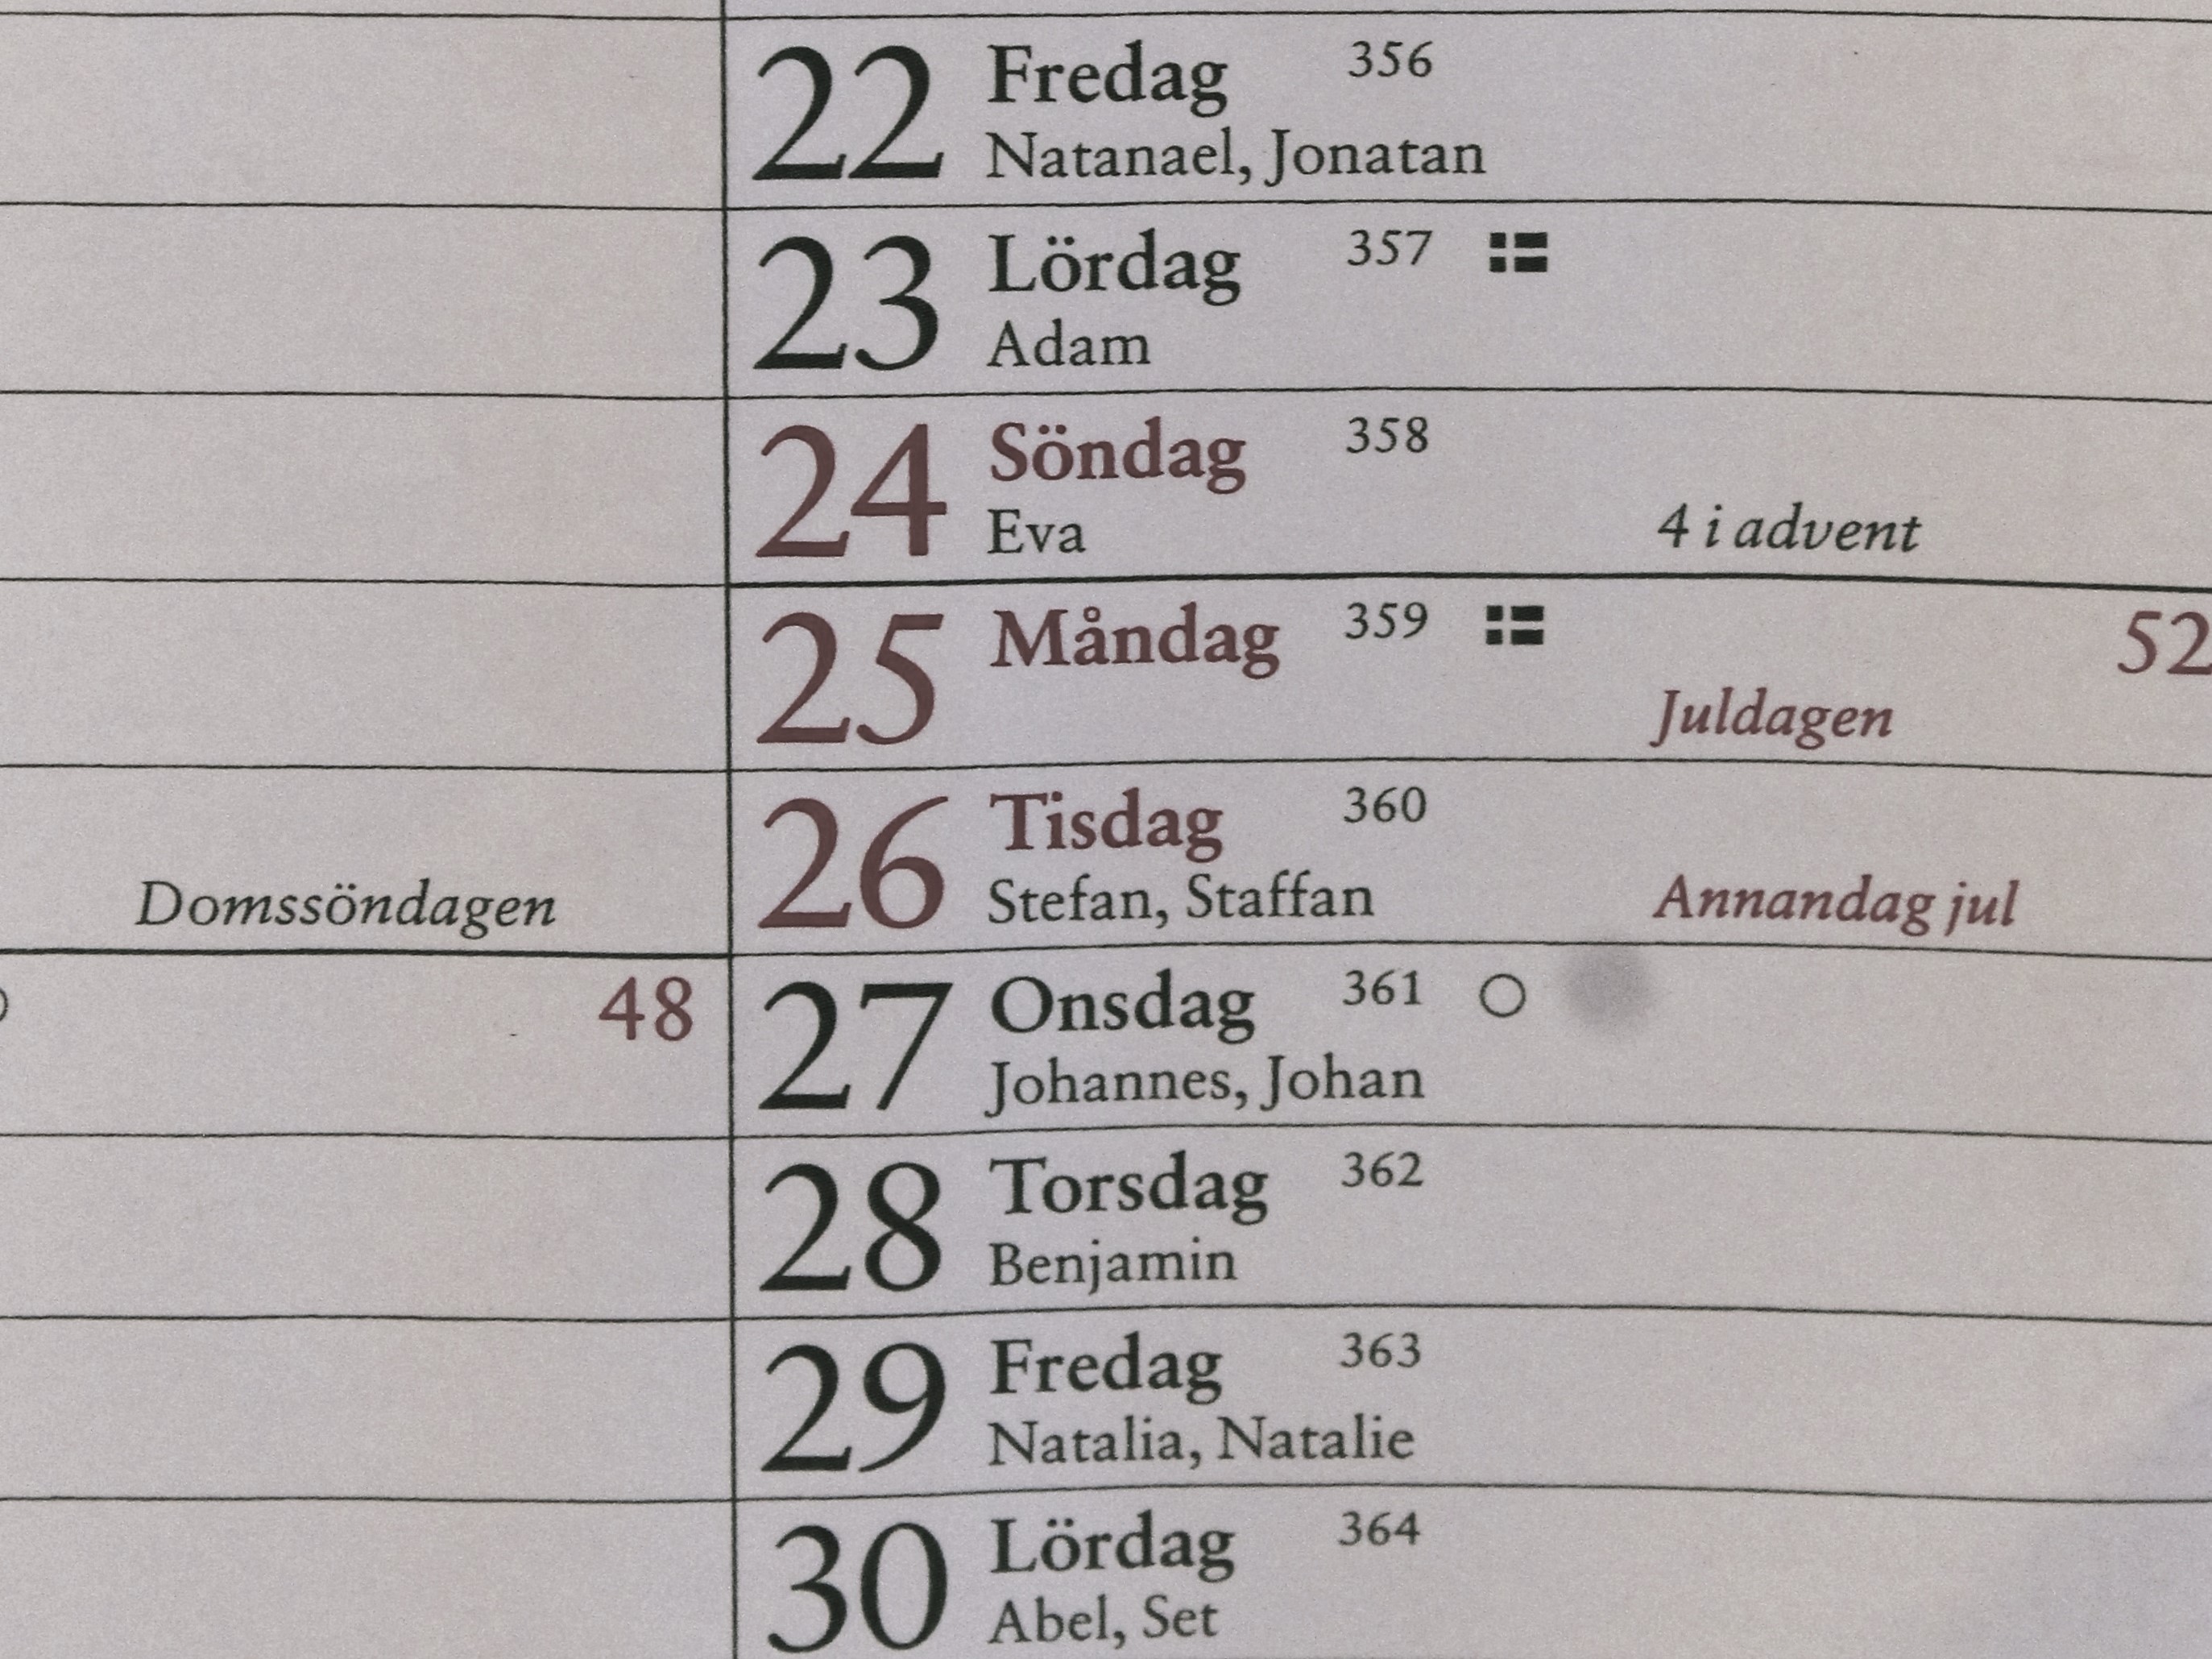 22 Fredag 356
Natanael, Jonatan
23 Lördag 357
Adam
24 Söndag 358
Eva
4 i advent
25 Måndag 359
52
Juldagen
26 Tisdag 360
Stefan, Staffan
Annandag jul
Domssöndagen
48
27 Onsdag 361
Johannes, Johan
28 Torsdag 362
Benjamin
29 Fredag 363
Natalia, Natalie
30 Lördag 364
Abel, Set